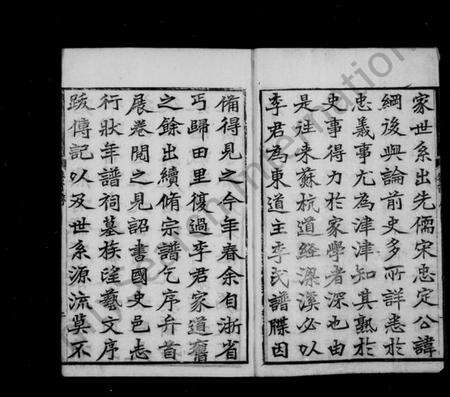 家世系出先儒宋忠定公諱
綱後與論前史多所詳悉於
忠義事尤為津津知其熟於
史事得力於家學者深也由
是往来蘇杭道經濮溪必以
李君為東道主李氏譜牒因
備得見之今年春余自浙省
丐歸田里復過李君家道舊
之餘出續脩宗譜乞序弁首
展卷閱之見詔書國史邑志
行狀年譜祠墓族望藝文序
跋傳記以及世系源流莫不